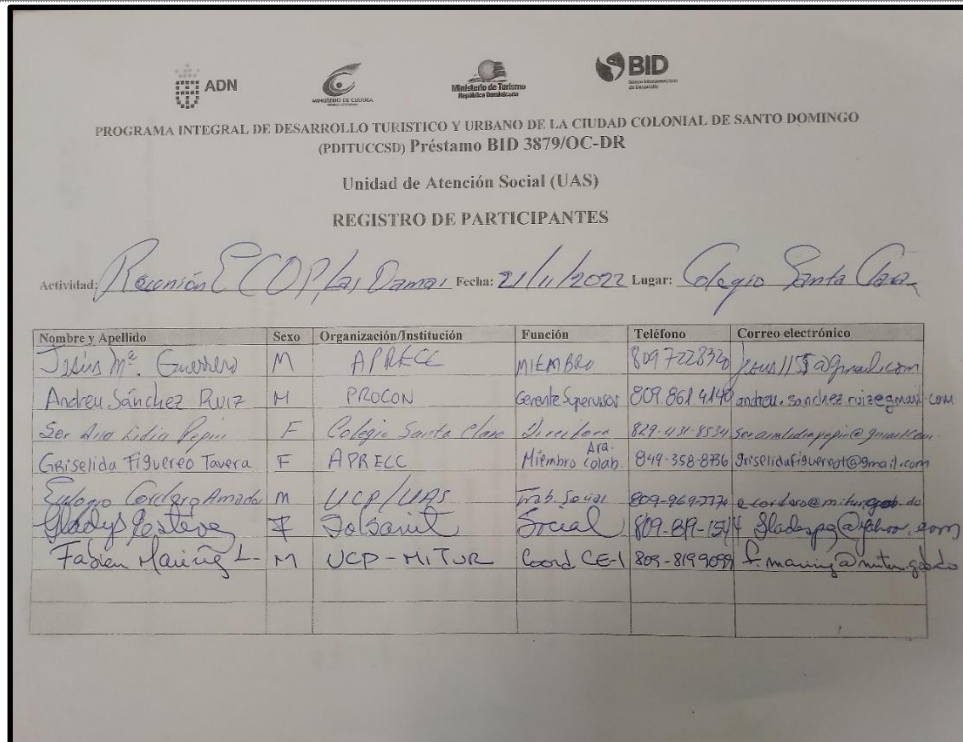 ADN
MINISTERIO DE CULTURA
Ministerio de Turismo
República Dominicana
BID
Banco Interamericano
de Desarrollo
PROGRAMA INTEGRAL DE DESARROLLO TURISTICO Y URBANO DE LA CIUDAD COLONIAL DE SANTO DOMINGO
(PDITUCCSD) Préstamo BID 3879/OC-DR
Unidad de Atención Social (UAS)
REGISTRO DE PARTICIPANTES
Actividad: Reunión ECOP/Las Damas Fecha: 21/11/2022 Lugar: Colegio Santa Clara
Nombre y Apellido Sexo Organización/Institución Función Teléfono Correo electrónico
Jesús Mª. Guerrero M APRECC MIEMBRO
Andreu Sánchez Ruiz M PROCON Gerente Supervisor 809.861 4140 andreu.sanchez.ruiz@gmail.com
Sor Ana Lidia Pepin F Colegio Santa Clara Directora 829-431-8534
Griselida Figuereo Tavera F APRECC Miembro Colab. 849-358-8736 griselidafiguereot@gmail.com
Eulogio Cordero Amador M UCP/UAS Trab. Social e.cordero@mitur.gob.do
Gladys F Social
Fabien M UCP-MITUR Coord CE-1 809-8199099